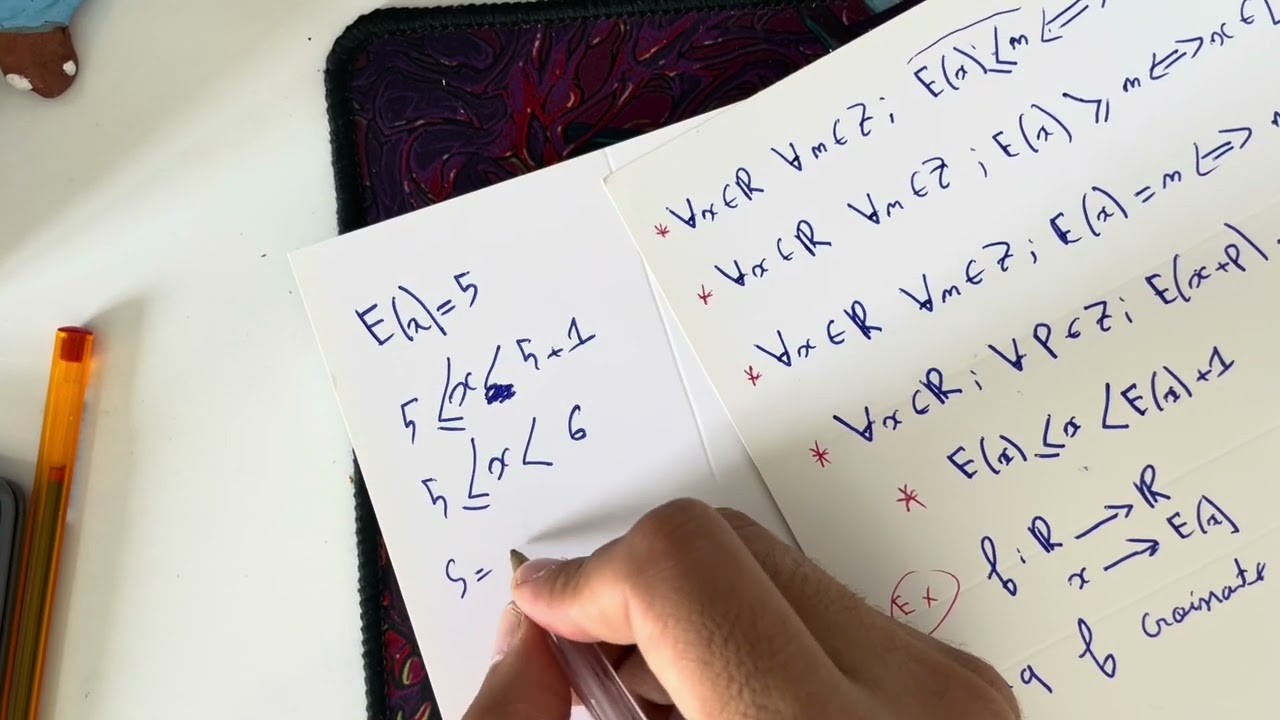 E(x)=5
5 ≤ x < 5+1
5 ≤ x < 6
S=
* ∀x∈ℝ ∀m∈Z ; E(x) ≤ m <=>
* ∀x∈ℝ ∀m∈Z ; E(x) ≥ m <=> x∈[
* ∀x∈ℝ ∀m∈Z ; E(x) = m <=>
* ∀x∈ℝ ; ∀P∈Z ; E(x+P)
* E(x) ≤ x < E(x)+1
EX f : ℝ → ℝ
x → E(x)
q f croissante